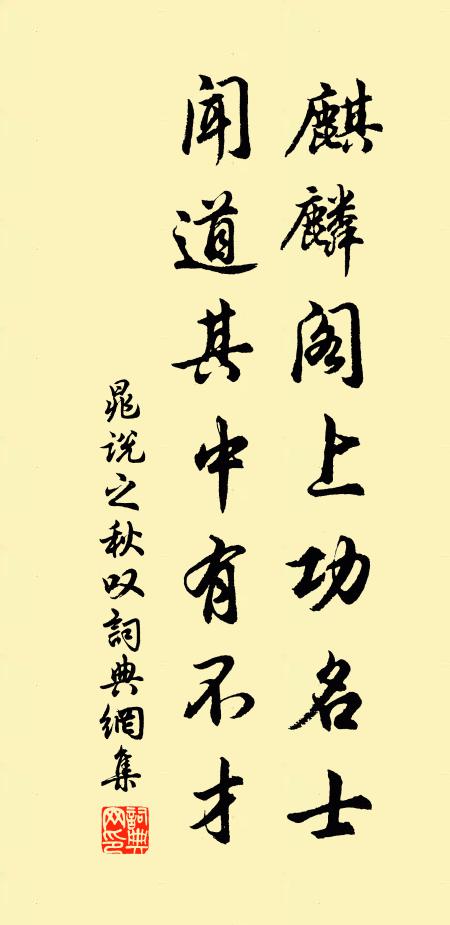 麒麟阁上功名士
闻道其中有不才
晁说之秋叹詞典網集
詞典网印